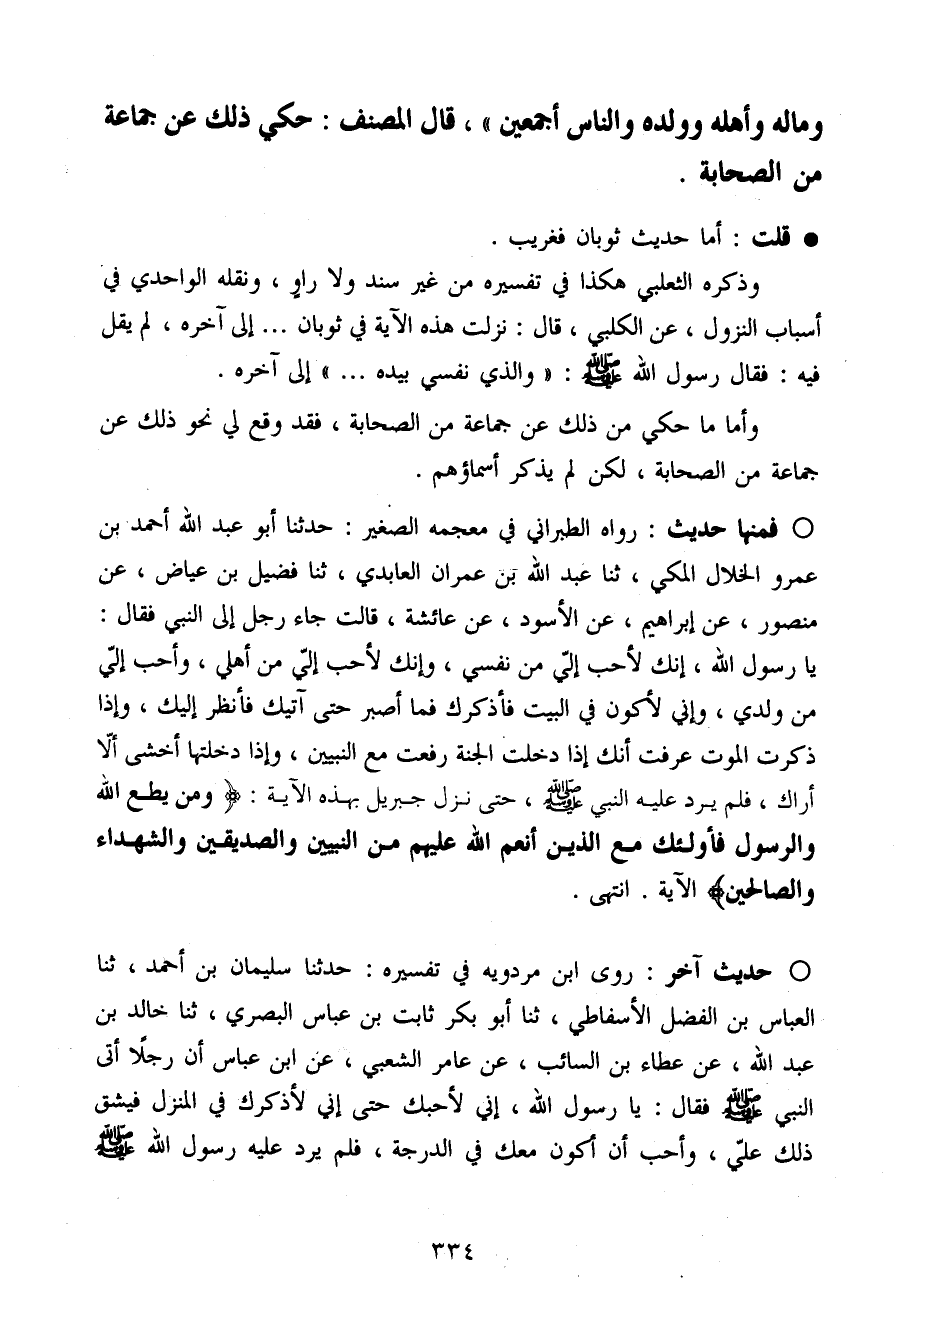 وماله وأهله وولده والناس أجمعين » ، قال المصنف : حكي ذلك عن جماعة
من الصحابة .
● قلت : أما حديث ثوبان فغريب .
وذكره الثعلبي هكذا في تفسيره من غير سند ولا راوٍ ، ونقله الواحدي في
أسباب النزول ، عن الكلبي ، قال : نزلت هذه الآية في ثوبان ... إلى آخره ، لم يقل
فيه : فقال رسول الله ﷺ : « والذي نفسي بيده ... » إلى آخره .
وأما ما حكي من ذلك عن جماعة من الصحابة ، فقد وقع لي نحو ذلك عن
جماعة من الصحابة ، لكن لم يذكر أسماؤهم .
○ فمنها حديث : رواه الطبراني في معجمه الصغير : حدثنا أبو عبد الله أحمد بن
عمرو الخلال المكي ، ثنا عبد الله بن عمران العابدي ، ثنا فضيل بن عياض ، عن
منصور ، عن إبراهيم ، عن الأسود ، عن عائشة ، قالت جاء رجل إلى النبي فقال :
يا رسول الله ، إنك لأحب إليّ من نفسي ، وإنك لأحب إليّ من أهلي ، وأحب إليّ
من ولدي ، وإني لأكون في البيت فأذكرك فما أصبر حتى آتيك فأنظر إليك ، وإذا
ذكرت الموت عرفت أنك إذا دخلت الجنة رفعت مع النبيين ، وإذا دخلتها أخشى ألّا
أراك ، فلم يرد عليه النبي ﷺ ، حتى نزل جبريل بهذه الآية : ﴿ ومن يطع الله
والرسول فأولئك مع الذين أنعم الله عليهم من النبيين والصديقين والشهداء
والصالحين﴾ الآية . انتهى .
○ حديث آخر : روى ابن مردويه في تفسيره : حدثنا سليمان بن أحمد ، ثنا
العباس بن الفضل الأسفاطي ، ثنا أبو بكر ثابت بن عباس البصري ، ثنا خالد بن
عبد الله ، عن عطاء بن السائب ، عن عامر الشعبي ، عن ابن عباس أن رجلًا أتى
النبي ﷺ فقال : يا رسول الله ، إني لأحبك حتى إني لأذكرك في المنزل فيشق
ذلك عليّ ، وأحب أن أكون معك في الدرجة ، فلم يرد عليه رسول الله ﷺ
٣٣٤